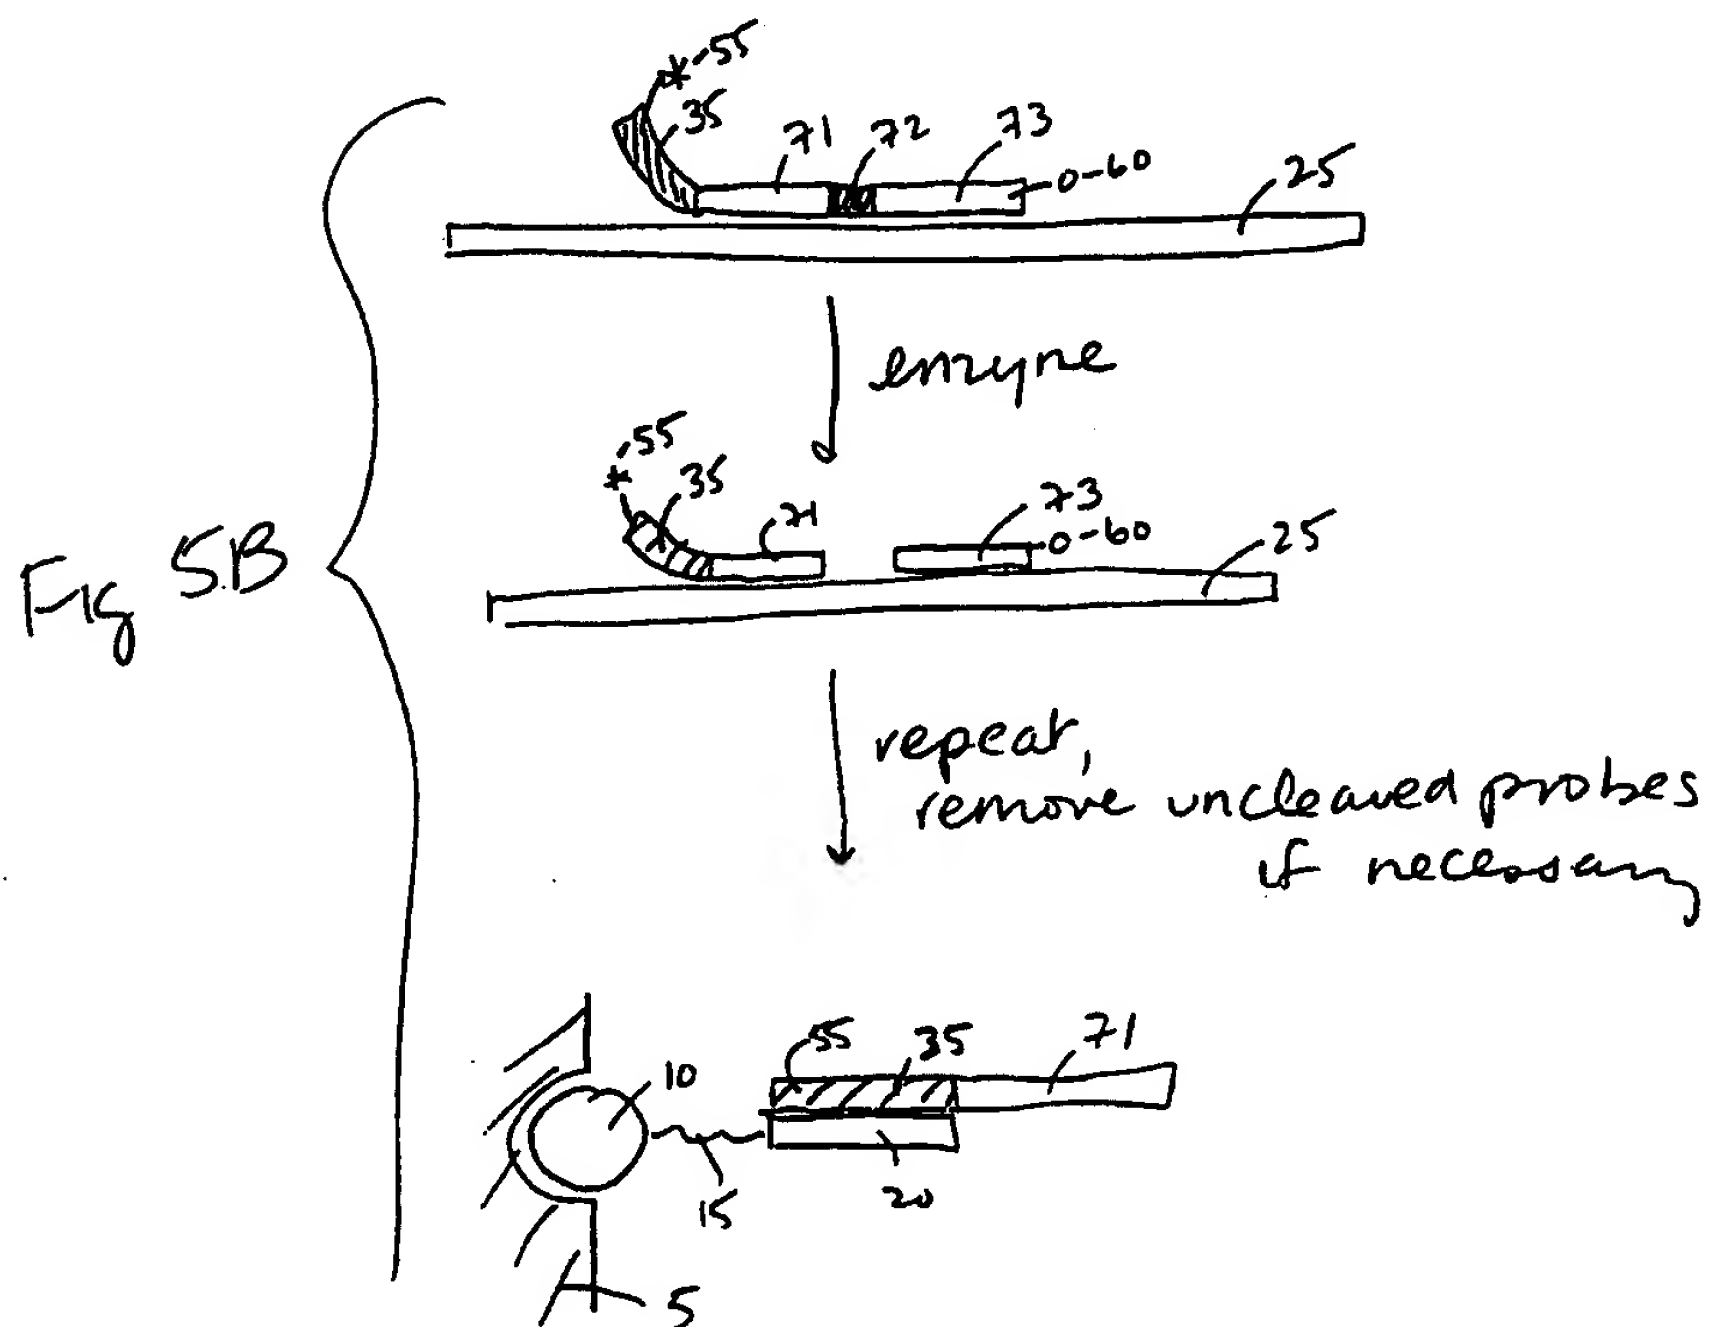 *-55
35
71 72 73
0-60
25
enzyme
*-55
35
71
73
0-60
25
Fig 5B
repeat,
remove uncleaved probes
if necessary
55 35 71
10
15
20
5